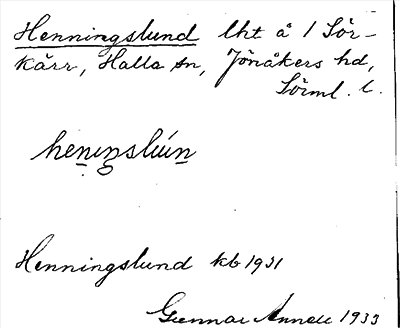 Henningslund lht å 1 Sör-
kärr, Halla sn, Jönåkers hd,
Sörml. l.
Henningslund kb 1931
Gunnar 1933